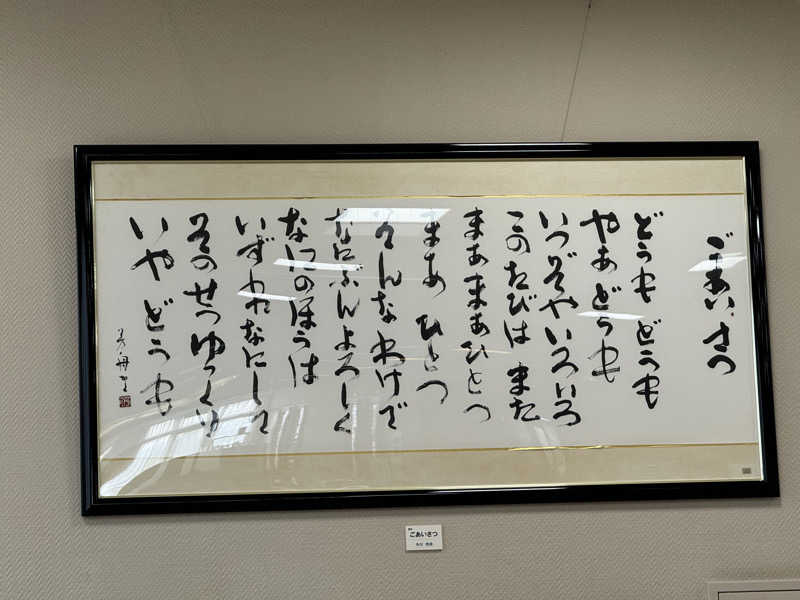 ごあいさつ
どうも どうも
やあどうも
いつぞやいろいろ
このたびは また
まあまあひとつ
まあ ひとつ
そんなわけで
なにぶんよろしく
なにのほうは
いずれなにして
そのせつゆっくり
いや どうも
ごあいさつ